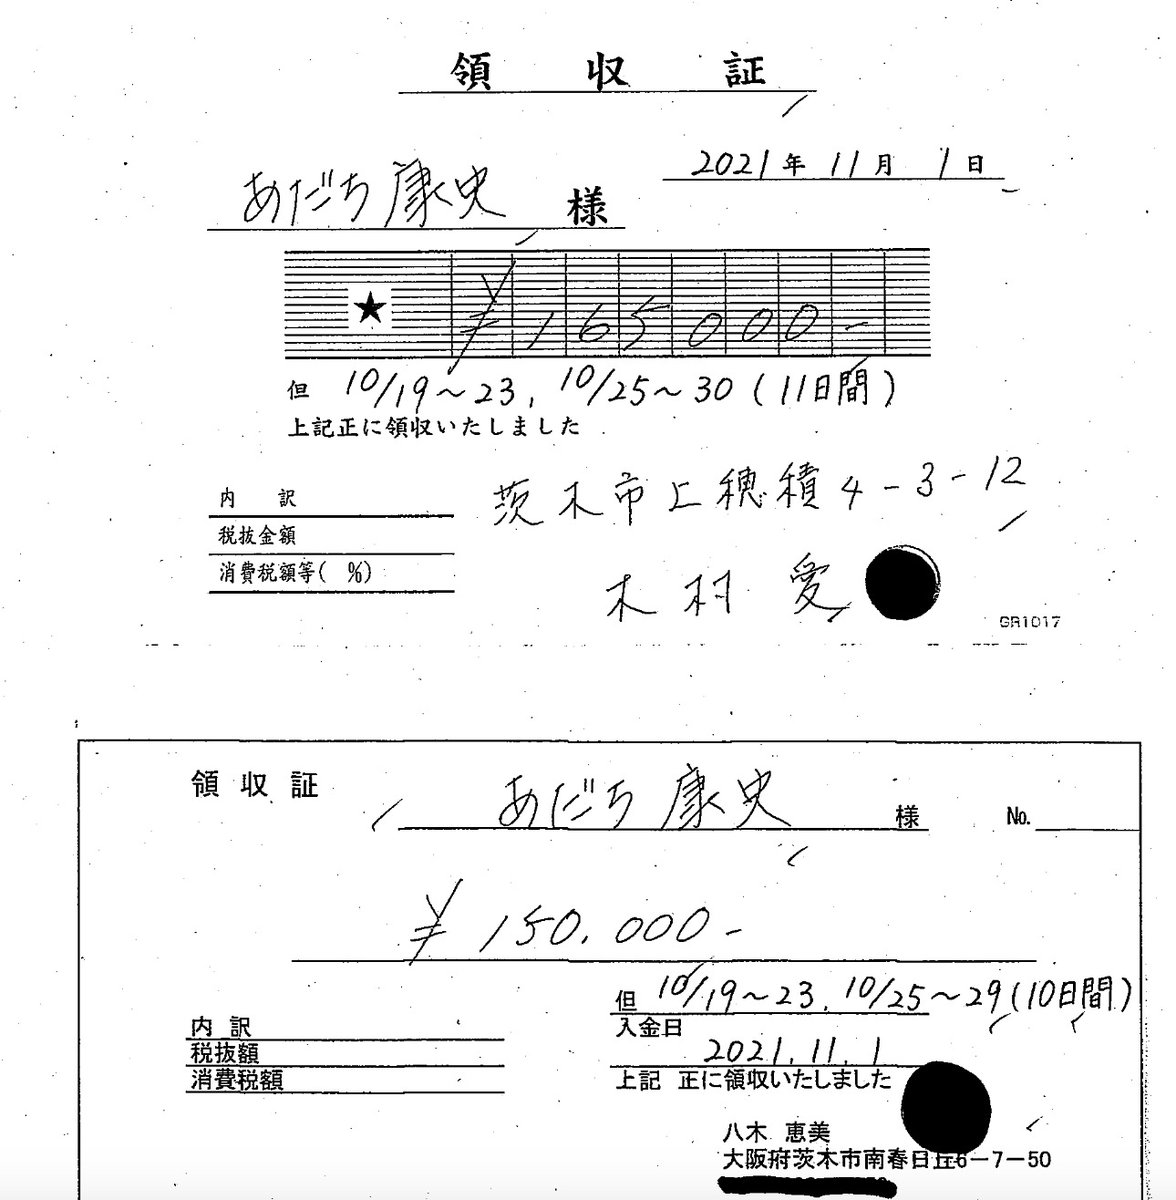 領収証
2021年11月1日
あだち康史 様
★ ¥165000-
但 10/19~23, 10/25~30(11日間)
上記正に領収いたしました
内訳
税抜金額
消費税額等( %)
茨木市上穂積4-3-12
木村 愛
GR1017
領収証 あだち康史 様 No.
¥150.000-
但 10/19~23, 10/25~29(10日間)
入金日
2021.11.1
上記 正に領収いたしました
内訳
税抜額
消費税額
八木 恵美
大阪府茨木市南春日丘6-7-50